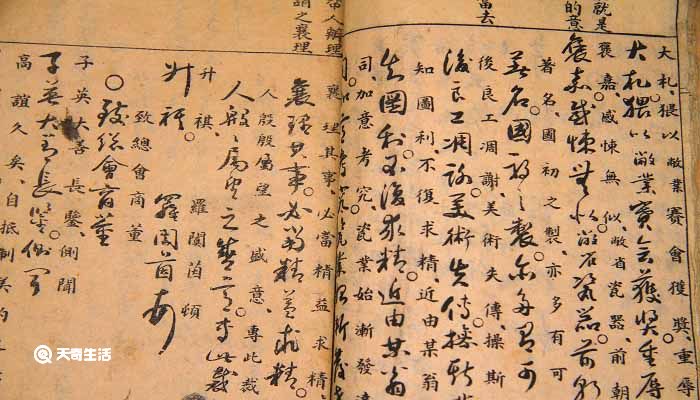 就是
的意
當去
大札。猥以敝業賽會獲獎。重辱
大札猥以敝業賽會獲獎重辱
褒嘉。感悚無似。敝省瓷器。前朝
褒嘉感悚無似敝省瓷器前朝
著名。國初之製。亦多有可
著名國初之製亦多有可
後良工凋謝。美術失傳。操斯
後良工凋謝美術失傳操斯
知圖利。不復求精。近由某翁
知圖利不復求精近由某翁
司。加意考究。瓷業始漸發達
人辦理
謂之襄理
襄理其事。必當精益求精
襄理其事必當精益求精
人殷殷屬望之盛意。專此裁
人殷殷屬望之盛意專此裁
升祺。羅閬茵頓
升祺 羅閬茵頓
致總會商董
致總會商董
子英大善長鑒側聞
子英大善長鑒側聞
高誼久矣。自抵制美約
天奇生活